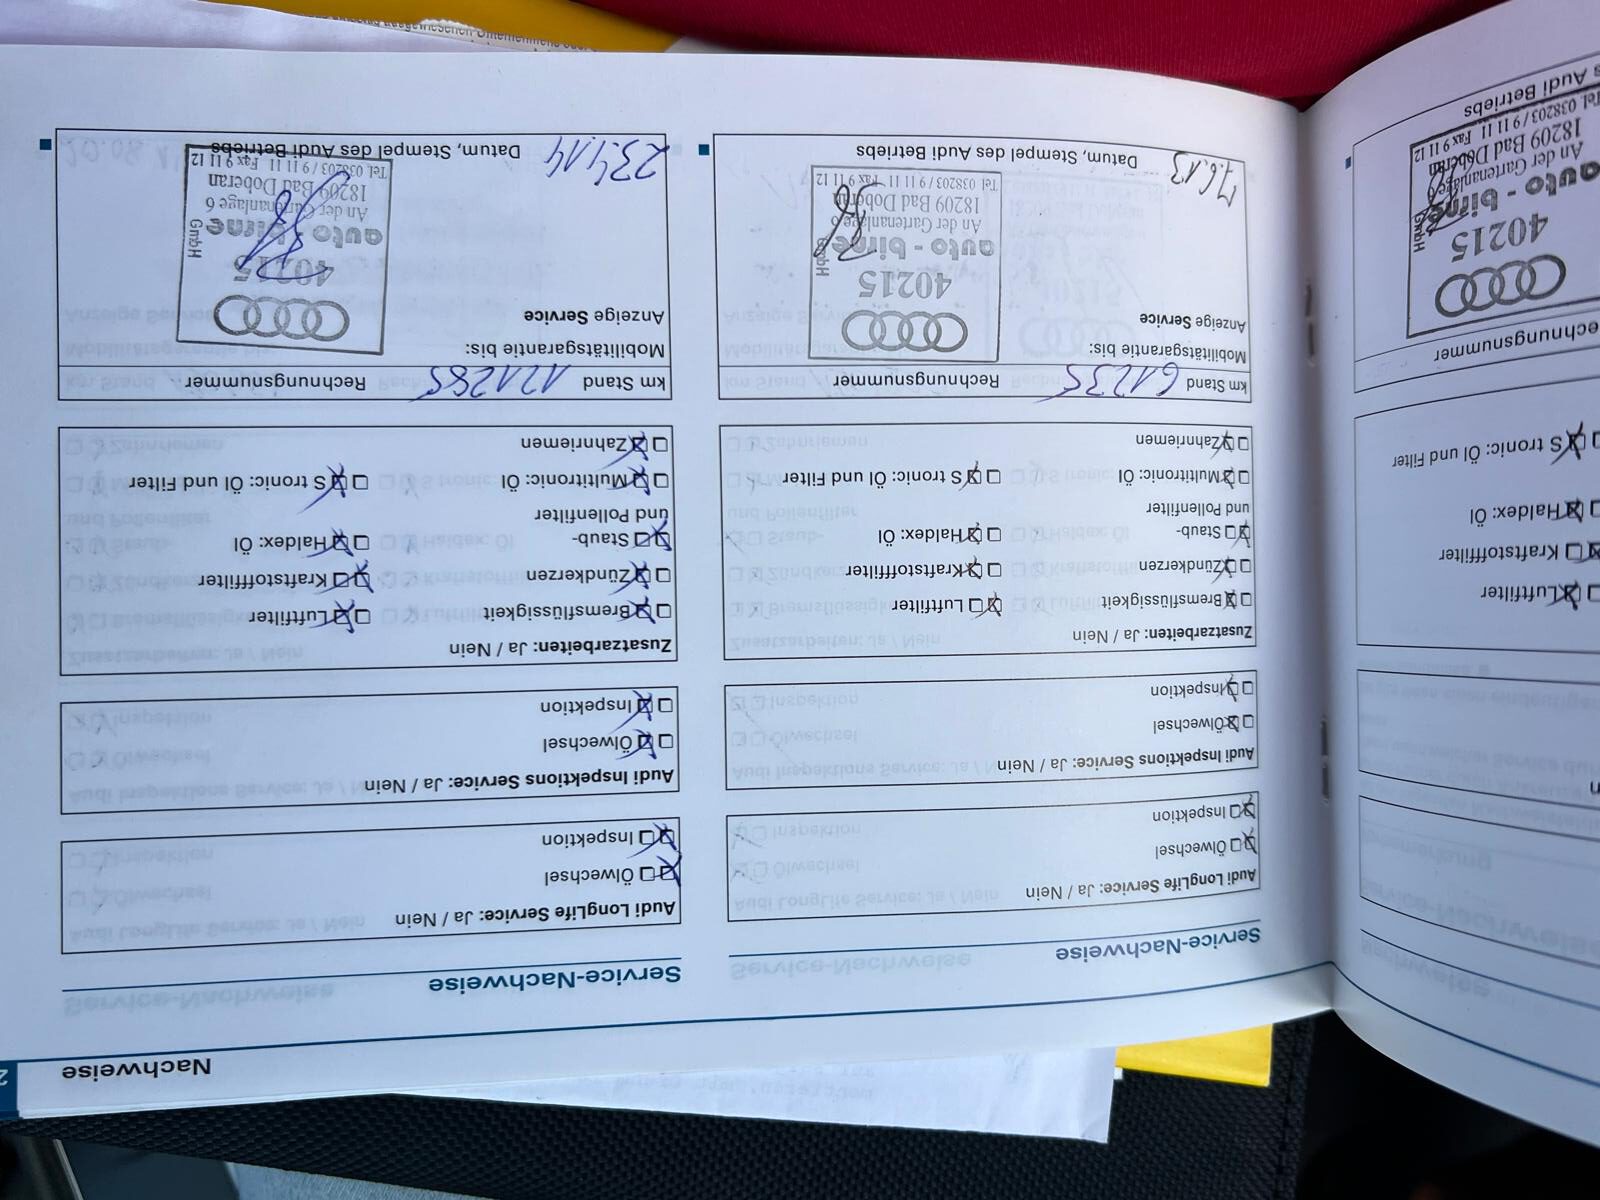 Luftfilter
Kraftstofffilter
Haldex: Öl
S tronic: Öl und Filter
echnungsnummer
40215
auto - birne
GmbH
An der Gartenanlage 6
18209 Bad Doberan
Tel. 038203 / 9 11 11 Fax 9 11 12
s Audi Betriebs
Nachweise
2
Service-Nachweise
Audi LongLife Service: Ja / Nein
Ölwechsel
Inspektion
Audi Inspektions Service: Ja / Nein
Ölwechsel
Inspektion
Zusatzarbeiten: Ja / Nein
Bremsflüssigkeit Luftfilter
Zündkerzen Kraftstofffilter
Staub- Haldex: Öl
und Pollenfilter
Multitronic: Öl S tronic: Öl und Filter
Zahnriemen
km Stand 61235 Rechnungsnummer
Mobilitätsgarantie bis:
Anzeige Service
40215
auto - birne
GmbH
An der Gartenanlage 6
18209 Bad Doberan
Tel. 038203 / 9 11 11 Fax 9 11 12
17.6.13 Datum, Stempel des Audi Betriebs
Service-Nachweise
Audi LongLife Service: Ja / Nein
Ölwechsel
Inspektion
Audi Inspektions Service: Ja / Nein
Ölwechsel
Inspektion
Zusatzarbeiten: Ja / Nein
Bremsflüssigkeit Luftfilter
Zündkerzen Kraftstofffilter
Staub- Haldex: Öl
und Pollenfilter
Multitronic: Öl S tronic: Öl und Filter
Zahnriemen
km Stand Rechnungsnummer
Mobilitätsgarantie bis:
Anzeige Service
40215
auto - birne
GmbH
An der Gartenanlage 6
18209 Bad Doberan
Tel. 038203 / 9 11 11 Fax 9 11 12
23.4.14 Datum, Stempel des Audi Betriebs